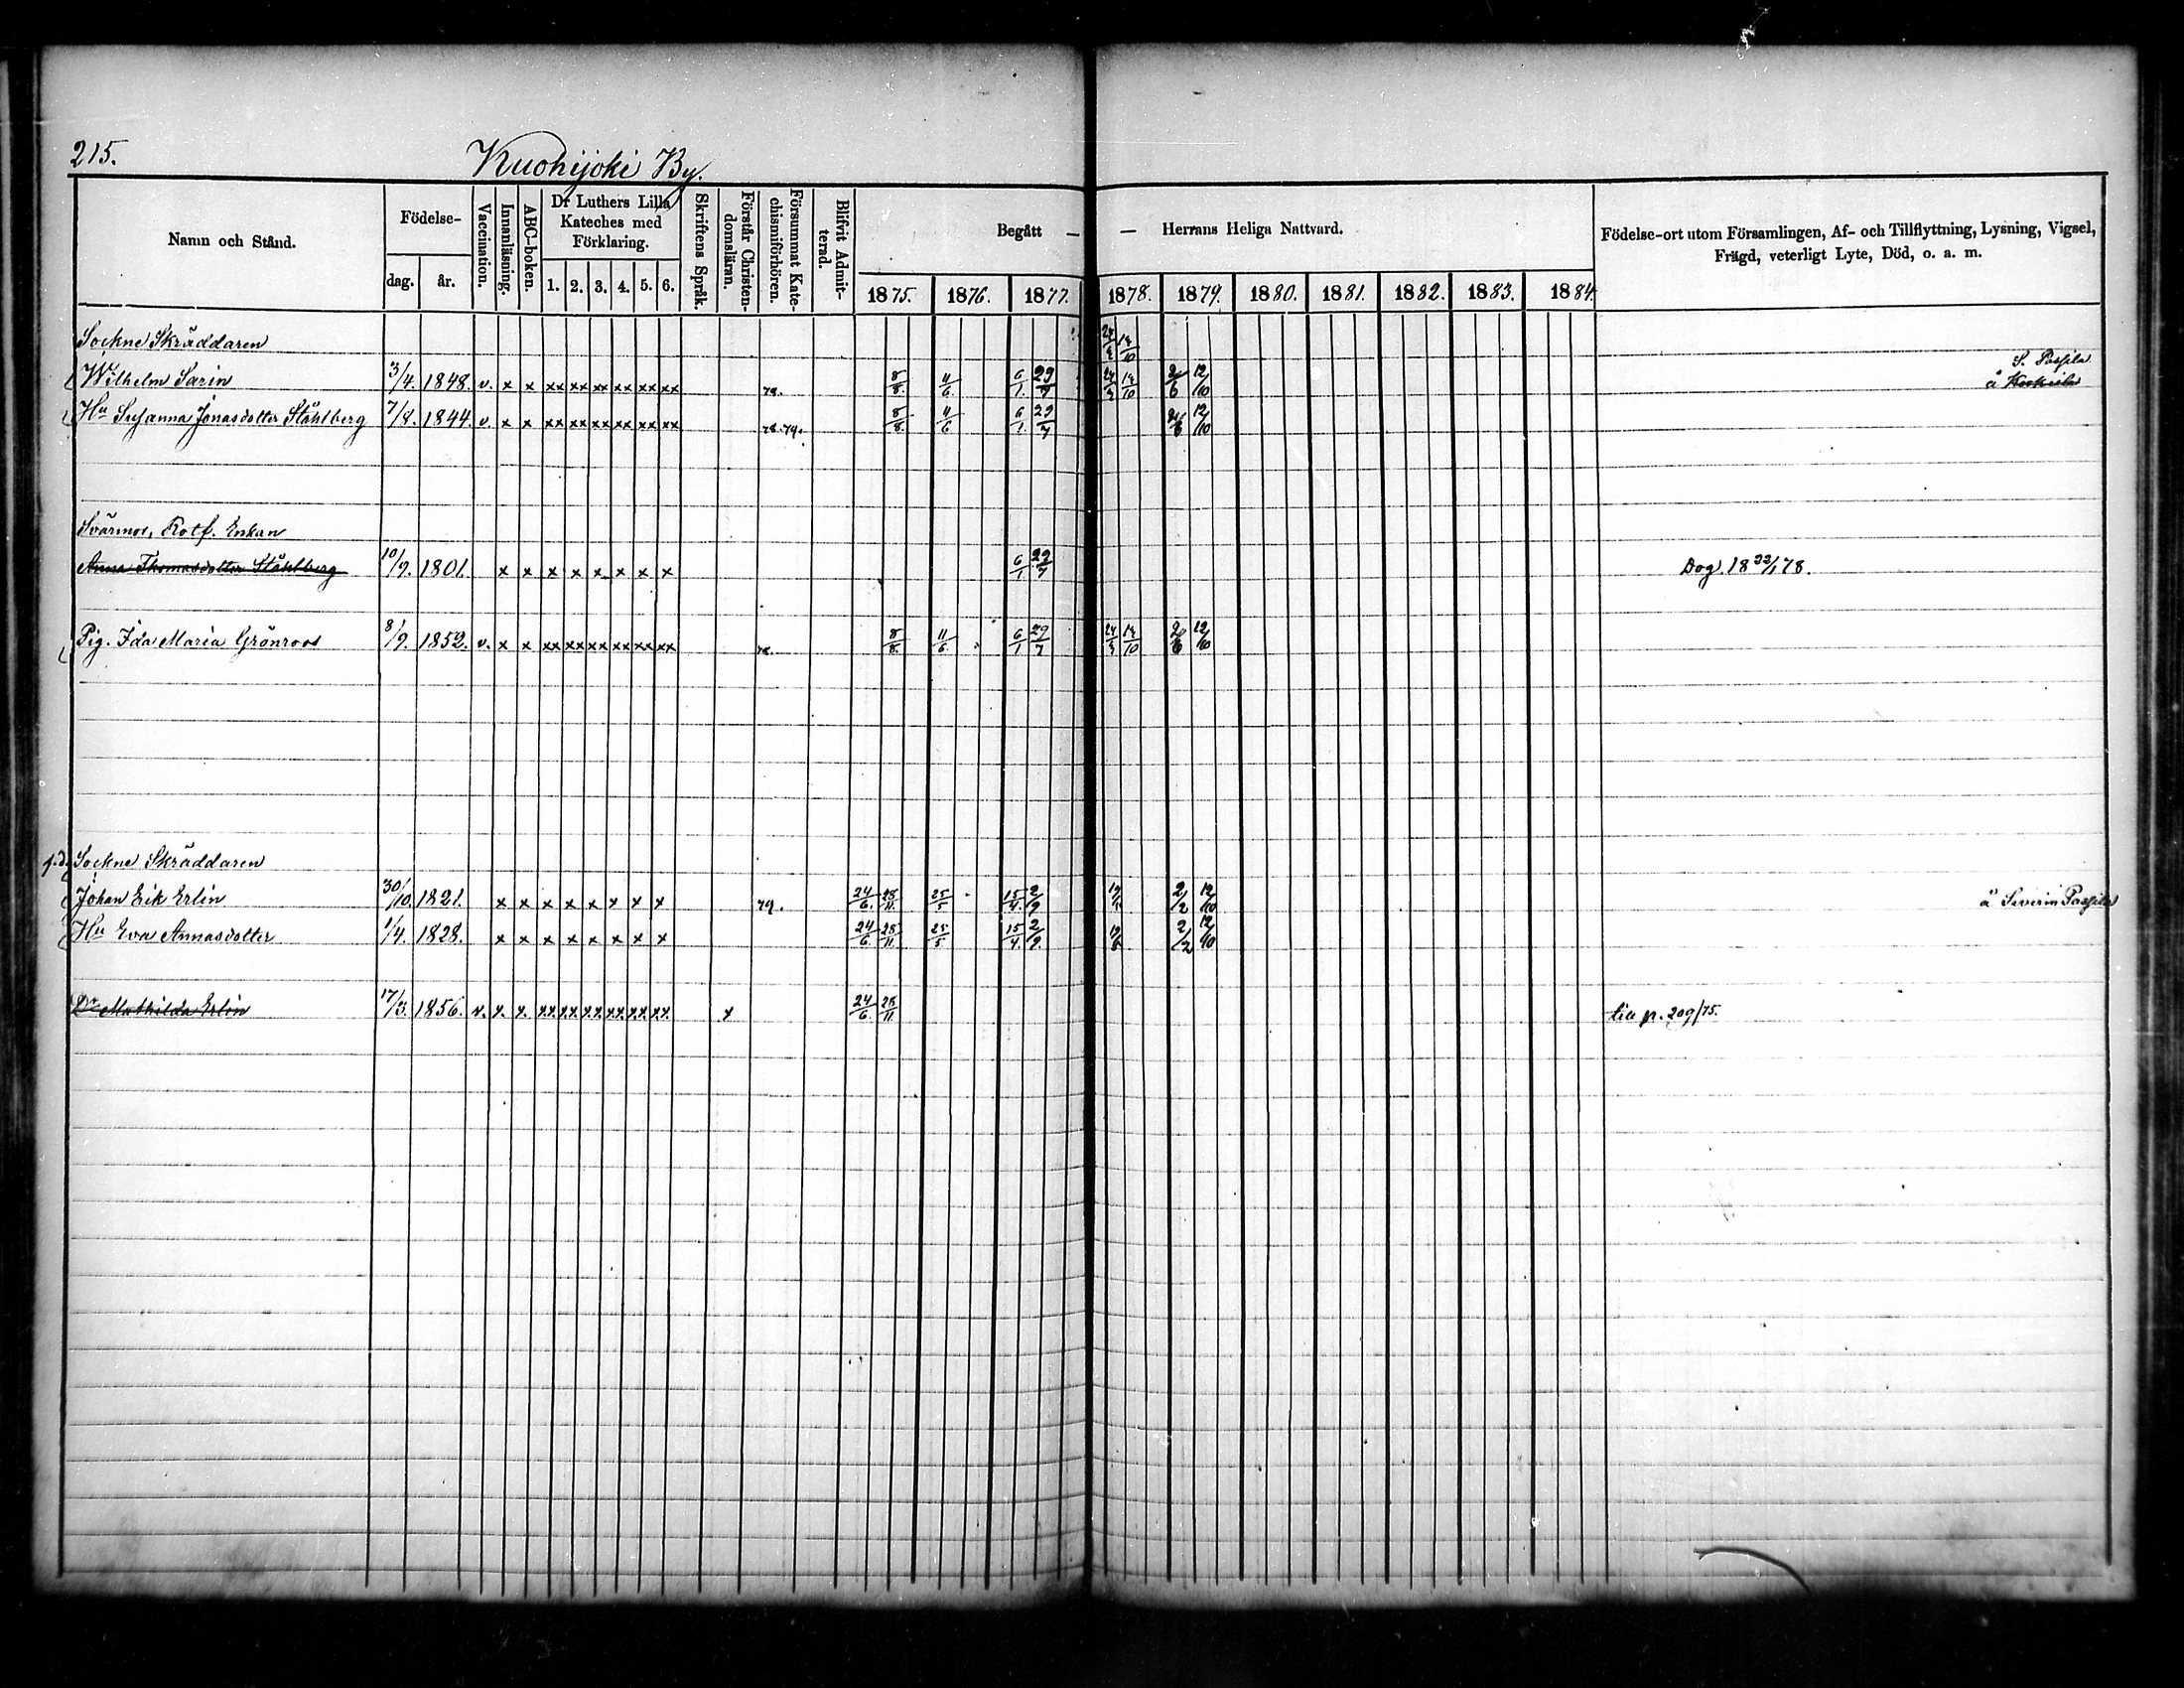 215.
Kuohijoki By.
Namn och Stånd.
Födelse-
dag. år.
Vaccination.
Innanläsning.
ABC-boken.
Dr Luthers Lilla
Kateches med
Förklaring.
1. 2. 3. 4. 5. 6.
Skriftens Språk.
Förstår Christen-
domsläran.
Försummat Kate-
chismiförhören.
Blifvit Admit-
terad.
Begått — — Herrans Heliga Nattvard.
1875. 1876. 1877. 1878. 1879. 1880. 1881. 1882. 1883. 1884
Födelse-ort utom Församlingen, Af- och Tillflyttning, Lysning, Vigsel,
Frägd, veterligt Lyte, Död, o. a. m.
Sockne Skräddaren 14/10
S. Passila
Wilhelm Sarin 3/4. 1848. v. x x xx xx xx xx xx xx 78. 8/8. 11/6. 6/1. 29/7 14/10 2/6 12/10 å
Hu Susanna Jonasdotter Ståhlberg 7/8. 1844. v. x x xx xx xx xx xx xx 78.79. 8/8. 11/6 6/1. 29/7 2/6 12/10
Svärmor, Rotf. Enkan
Anna Thomasdotter Ståhlberg 10/9. 1801. x x x x x x x x 6/1 29/7 Dog. 18 /78.
Pig. Ida Maria Grönroos 8/9. 1852. v. x x xx xx xx xx xx xx 78. 8/8. 11/6. 6/1 29/7 14/10 2/6 12/10
Sockne Skräddaren
Johan Erik Erlin 30/10. 1821. x x x x x x x x 79. 24/6. 28/11. 25/5 15/4. 2/9 2/2 12/10 å Severin Passila
Hu Eva Annasdotter 1/4. 1828. x x x x x x x x 24/6 28/11. 25/5 15/4. 2/9. 2/2 12/10
Dr Mathilda Erlin 17/3. 1856. v. x. x. xx xx xx xx xx xx x 24/6. 28/11. till p. 209/75.